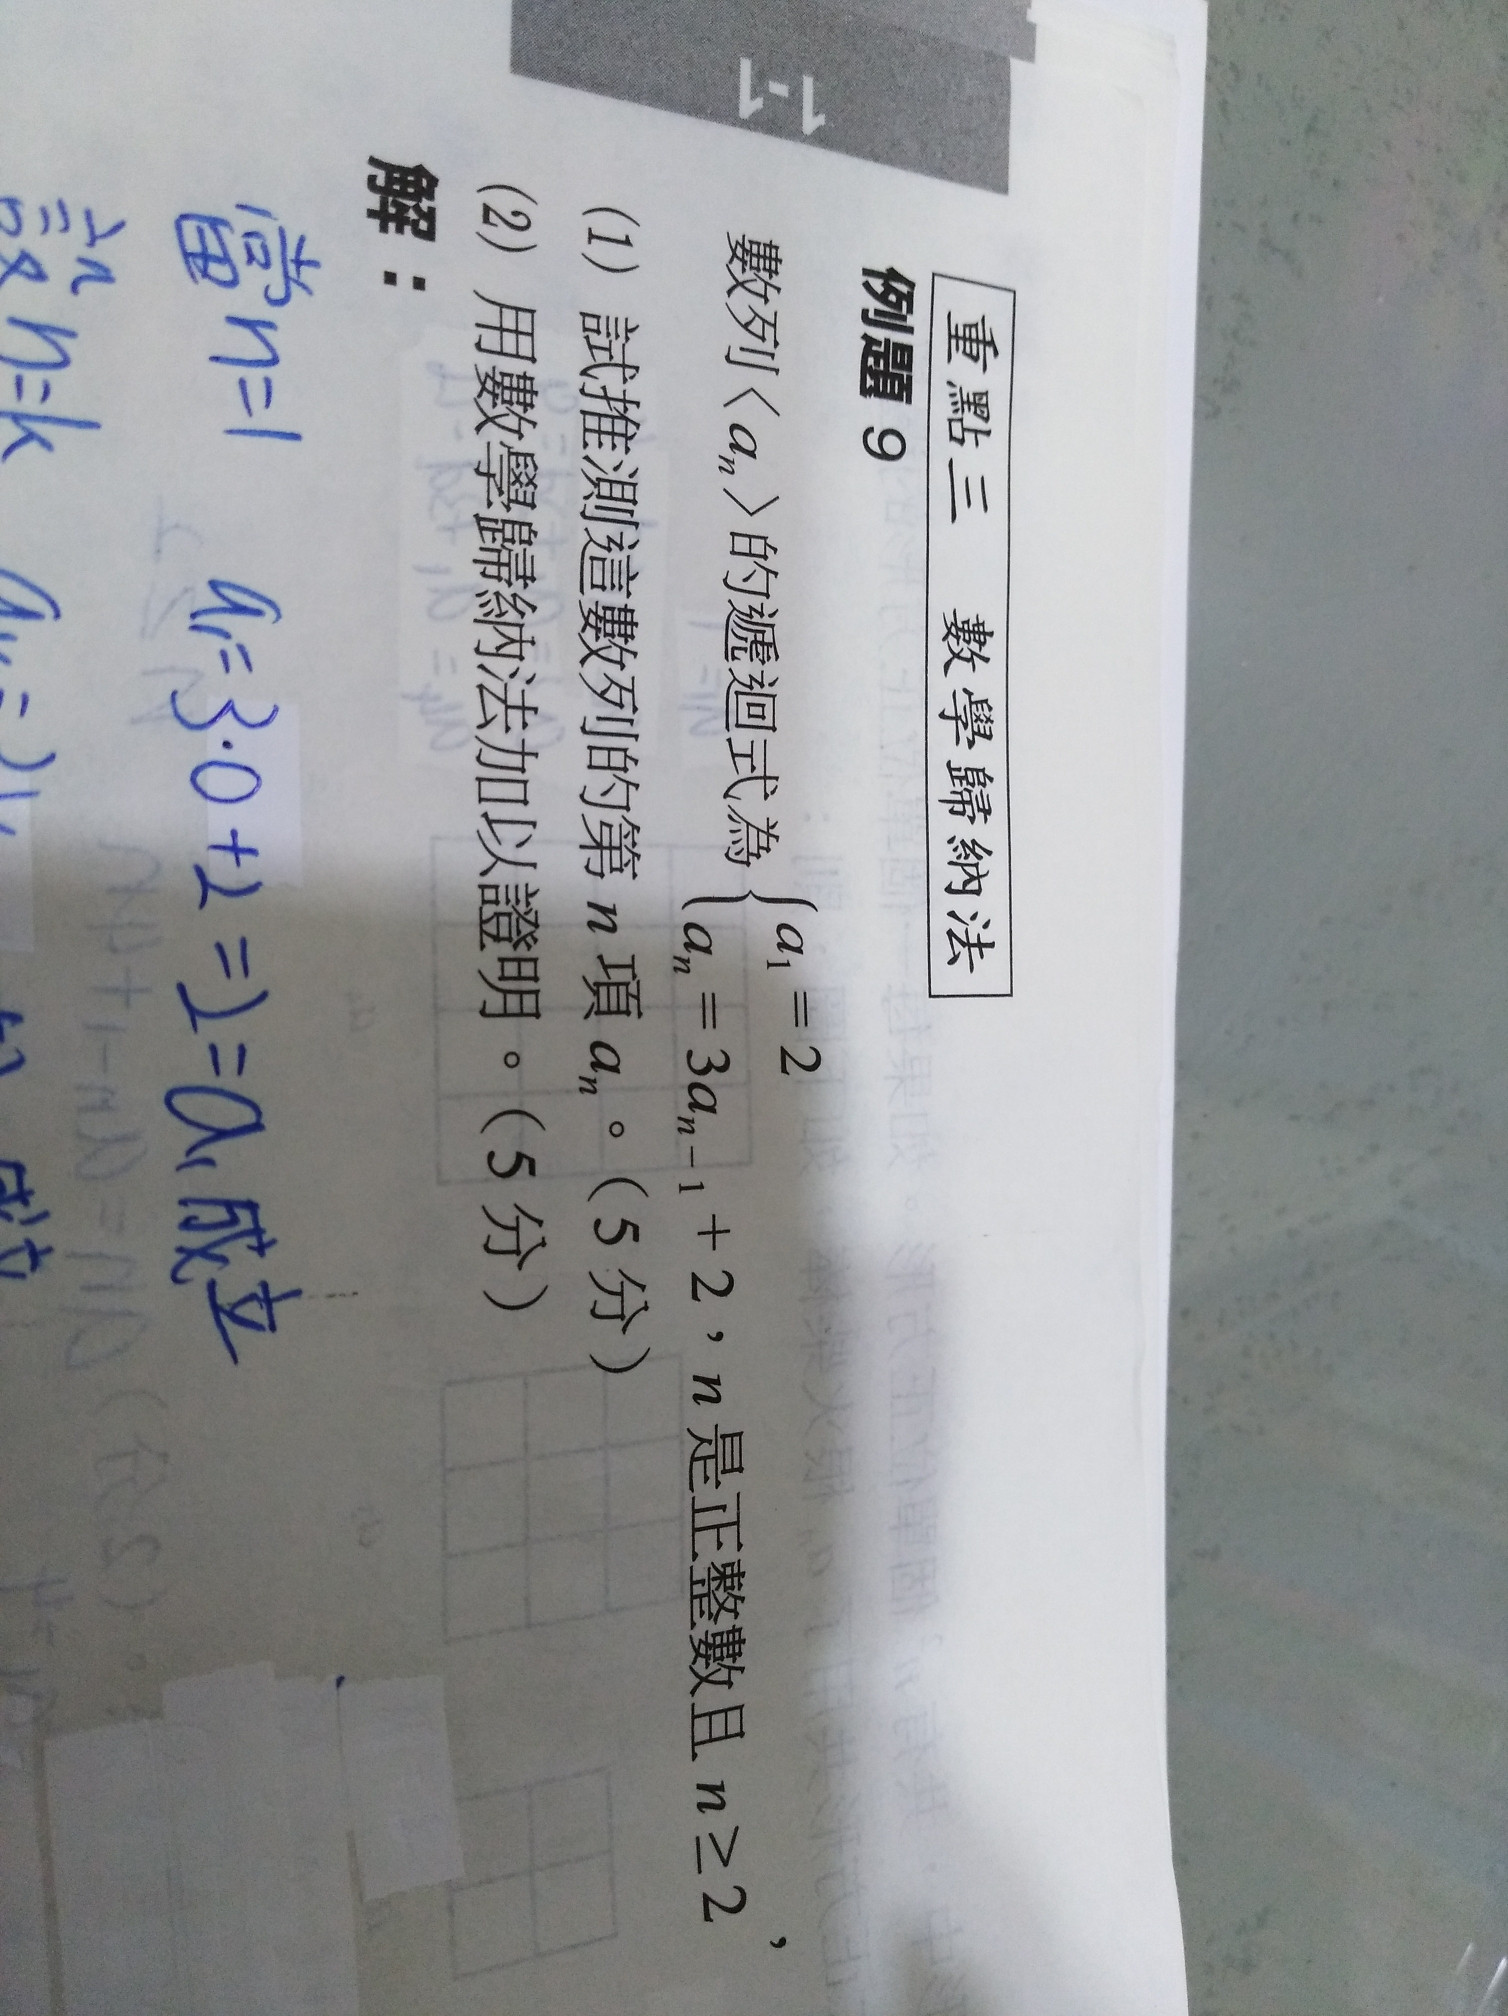 1-1
重點三 數學歸納法
例題 9
數列〈aₙ〉的遞迴式為 { a₁ = 2
aₙ = 3aₙ₋₁ + 2 , n 是正整數且 n ≥ 2 ,
(1) 試推測這數列的第 n 項 aₙ。(5 分)
(2) 用數學歸納法加以證明。(5 分)
解:
當 n=1 a₁=3·0+2=2=a₁ 成立
設 n=k